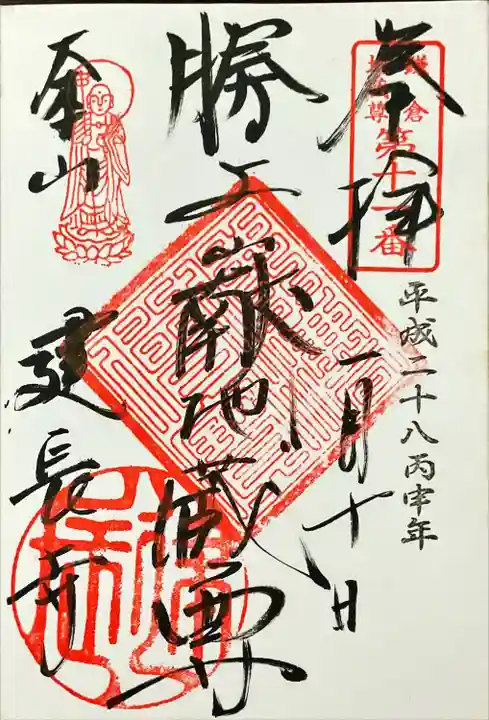 奉拝
鎌倉
地蔵尊
第十一番
平成二十八丙申年
一月十日
勝上嶽地蔵尊
大本山
建長寺